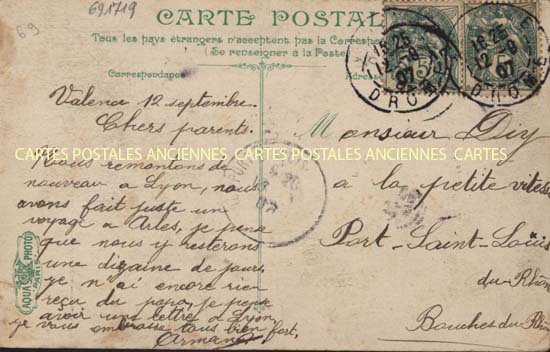 691719
CARTE POSTALE
Tous les pays étrangers n'acceptent pas la Correspondance
Se renseigner à la Poste
Correspondance
Adresse
18 25
12 - 9
07
DROME
18 25
12 - 9
07
DROME
Valence 12 septembre.
Chers parents.
Nous remontons de
nouveau à Lyon, nous
avons fait juste un
voyage à Arles, je pense
que nous y resterons
une dizaine de jours,
je n'ai encore rien
reçu du papa, je pense
avoir une lettre à Lyon,
je vous embrasse tous bien fort,
Armand
Monsieur Diy
à la petite vitesse
Port-Saint-Louis
du-Rhône
Bouches du Rhône
AQUA PHOTO
L.V. & Cie
PARIS
CARTES POSTALES ANCIENNES CARTES POSTALES ANCIENNES CARTES